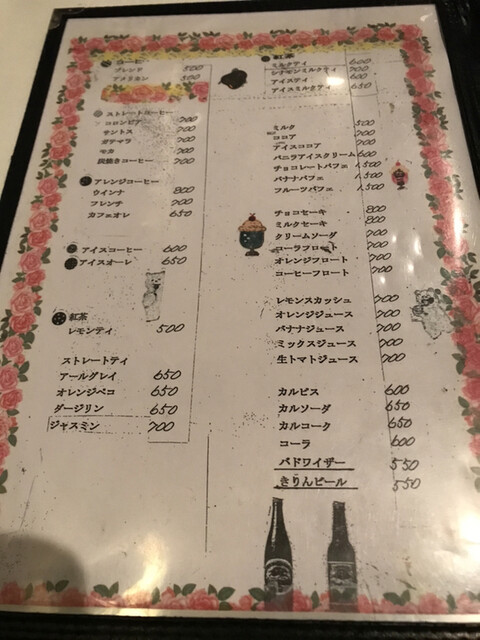 コーヒー
ブレンド 500
アメリカン 500
ストレートコーヒー
コロンビア 700
サントス 700
ガテマラ 700
モカ 700
炭焼きコーヒー 700
アレンジコーヒー
ウインナ 800
フレンチ 700
カフェオレ 650
アイスコーヒー 600
アイスオーレ 650
紅茶
レモンティ 500
ストレートティ
アールグレイ 650
オレンジペコ 650
ダージリン 650
ジャスミン 700
紅茶
ミルクティ 600
シナモンミルクティ 700
アイスティ 600
アイスミルクティ 650
ミルク 500
ココア 700
アイスココア 700
バニラアイスクリーム 600
チョコレートパフェ 1,500
バナナパフェ 1,500
フルーツパフェ 1,500
チョコセーキ 800
ミルクセーキ 800
クリームソーダ 700
コーラフロート 700
オレンジフロート 700
コーヒーフロート 700
レモンスカッシュ 700
オレンジジュース 700
バナナジュース 700
ミックスジュース 700
生トマトジュース 700
カルピス 600
カルソーダ 650
カルコーク 650
コーラ 600
バドワイザー 550
きりんビール 550